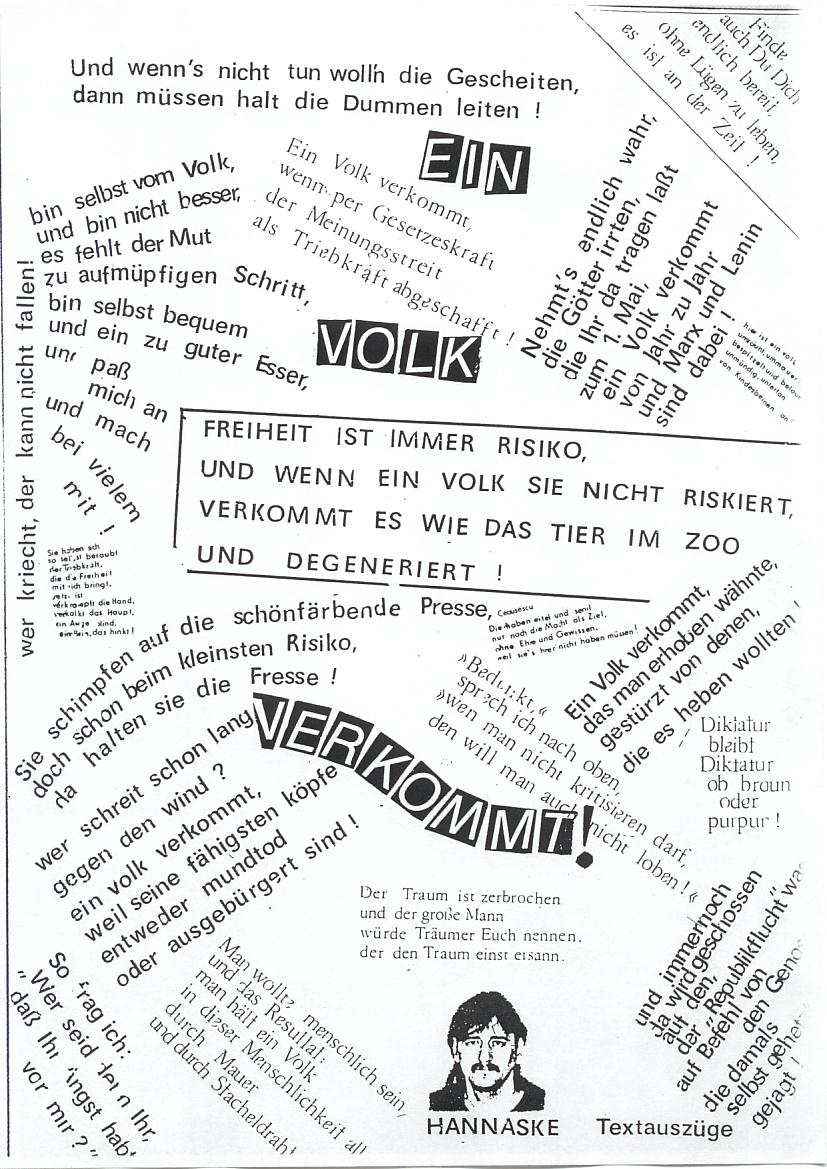 Und wenn's nicht tun woll'n die Gescheiten,
dann müssen halt die Dummen leiten !
Finde
auch Du Dich
endlich bereit,
ohne Lügen zu leben,
es ist an der Zeit !
EIN
Ein Volk verkommt,
wenn per Gesetzeskraft
der Meinungsstreit
als Triebkraft abgeschafft !
bin selbst vom Volk,
und bin nicht besser,
es fehlt der Mut
zu aufmüpfigen Schritt,
bin selbst bequem
und ein zu guter Esser,
und paß
mich an
und mach
bei vielem
mit !
wer kriecht, der kann nicht fallen!
Nehmt's endlich wahr,
die Götter irrten,
die Ihr da tragen laßt
zum 1. Mai,
ein Volk verkommt
von Jahr zu Jahr
und Marx und Lenin
sind dabei !
hier ist ein volk
umzäunt, ummauert
bespitzelt und belau
unmündig, untertan
von Kindesbeinen an !
VOLK
FREIHEIT IST IMMER RISIKO,
UND WENN EIN VOLK SIE NICHT RISKIERT,
VERKOMMT ES WIE DAS TIER IM ZOO
UND DEGENERIERT !
Sie haben sich
so selbst beraubt
der Triebkraft,
die die Freiheit
mit sich bringt,
jetzt ist
verkrampft die Hand,
verkalkt das Haupt,
ein Auge blind,
ein Bein, das hinkt!
Sie schimpfen auf die schönfärbende Presse,
doch schon beim kleinsten Risiko,
da halten sie die Fresse !
Ceausescu
Die haben eitel und senil
nur noch die Macht als Ziel,
ohne Ehre und Gewissen,
weil sie's hier nicht haben müssen!
Ein Volk verkommt,
das man erhoben wähnte,
gestürzt von denen,
die es heben wollten !
»Bedenkt,«
sprach ich nach oben,
»wen man nicht kritisieren darf,
den will man auch nicht loben!«
Diktatur
bleibt
Diktatur
ob braun
oder
purpur !
VERKOMMT!
wer schreit schon lang
gegen den wind ?
ein volk verkommt,
weil seine fähigsten köpfe
entweder mundtod
oder ausgebürgert sind !
Der Traum ist zerbrochen
und der große Mann
würde Träumer Euch nennen,
der den Traum einst ersann.
und immernoch
da wird geschossen
auf den,
der "Republikflucht" wa
auf Befehl von
den Geno
die damals
selbst gehe
gejagt !
Man wollte menschlich sein,
und das Resultat:
man hält ein Volk
in dieser Menschlichkeit all
durch Mauer
und durch Stacheldraht
So frag ich:
"Wer seid denn Ihr,
daß Ihr Angst hab
vor mir ?"
HANNASKE Textauszüge